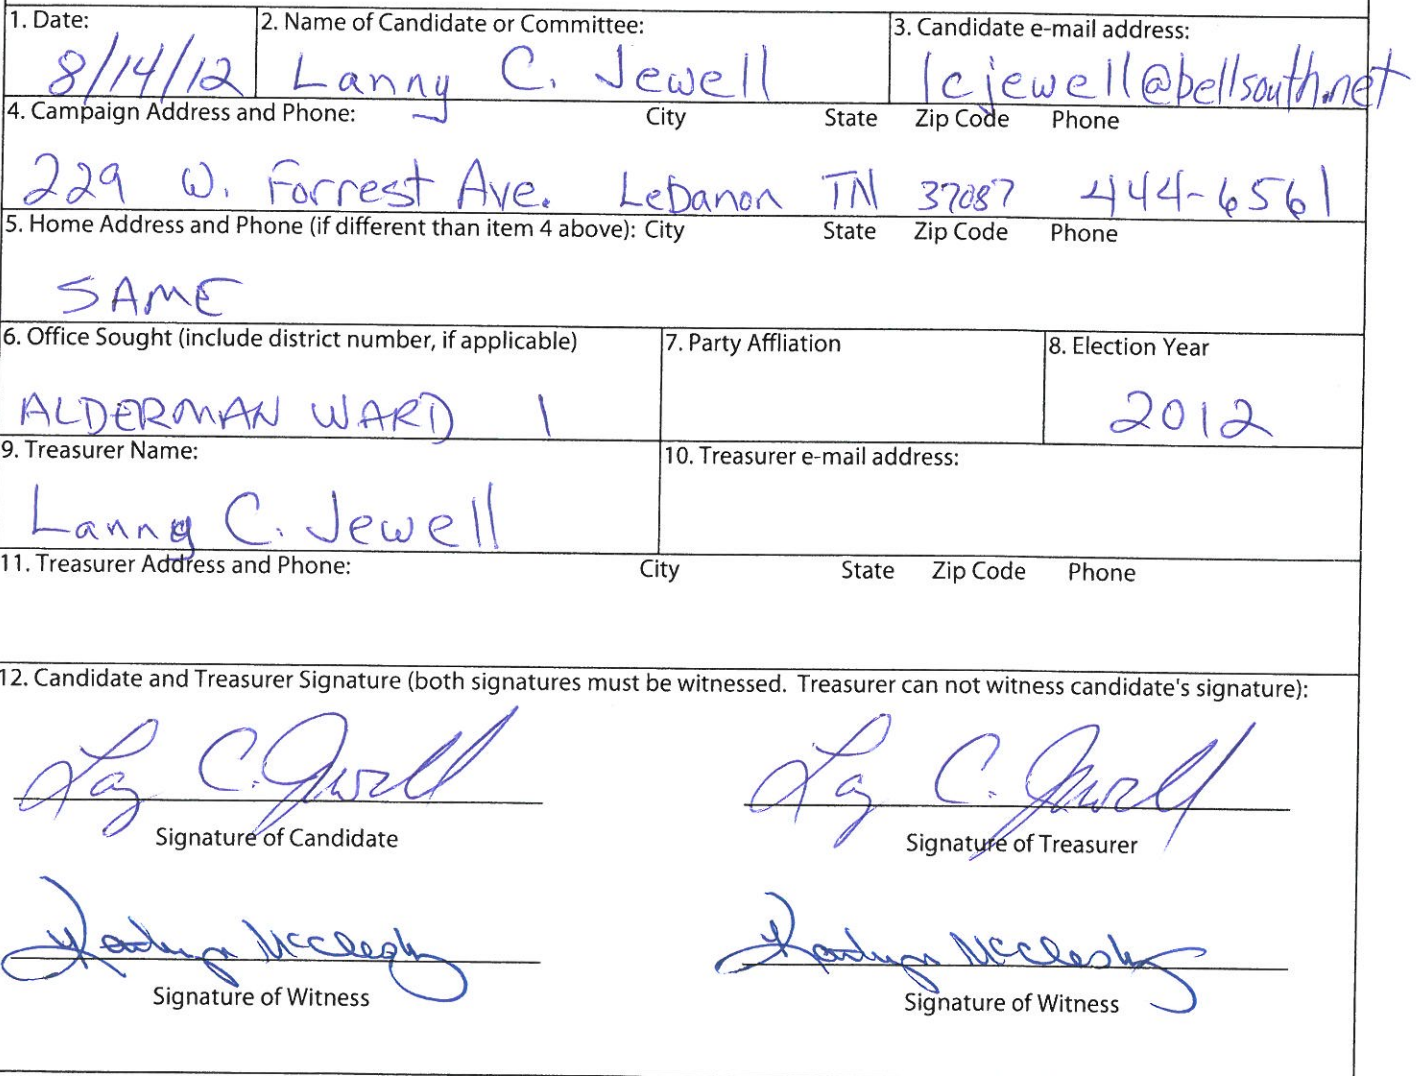 1. Date: 2. Name of Candidate or Committee: 3. Candidate e-mail address:
8/14/12 Lanny C. Jewell lcjewell@bellsouth.net
4. Campaign Address and Phone: City State Zip Code Phone
229 W. Forrest Ave. Lebanon TN 37087 444-6561
5. Home Address and Phone (if different than item 4 above): City State Zip Code Phone
SAME
6. Office Sought (include district number, if applicable) 7. Party Affliation 8. Election Year
ALDERMAN WARD 1 2012
9. Treasurer Name: 10. Treasurer e-mail address:
Lanny C. Jewell
11. Treasurer Address and Phone: City State Zip Code Phone
12. Candidate and Treasurer Signature (both signatures must be witnessed. Treasurer can not witness candidate's signature):
C. Jewell C. Jewell
Signature of Candidate Signature of Treasurer
Signature of Witness Signature of Witness